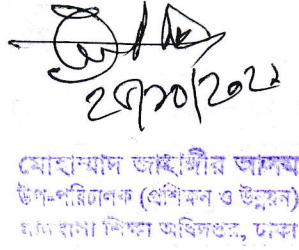 মোহাম্মাদ জাহাঙ্গীর আলম
উপ-পরিচালক (প্রশিক্ষন ও উন্নয়ন)
মাদরাসা শিক্ষা অধিদপ্তর, ঢাকা